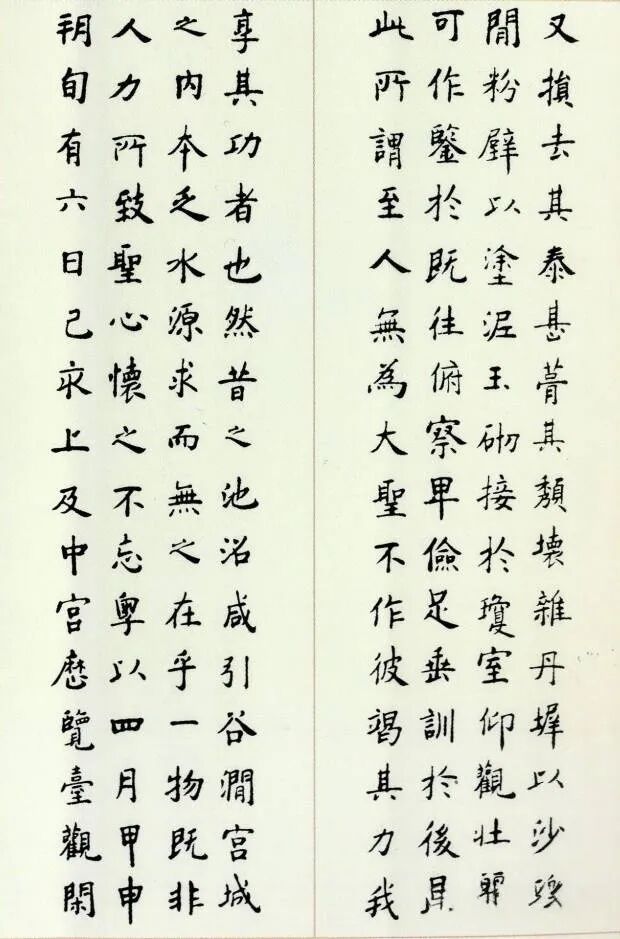 又損去其泰甚葺其頹壞雜丹墀以沙礫
閒粉壁以塗泥玉砌接於瓊室仰觀壯麗
可作鑒於既往俯察卑儉足垂訓於後昆
此所謂至人無為大聖不作彼竭其力我
享其功者也然昔之池沼咸引谷澗宮城
之內本乏水源求而無之在乎一物既非
人力所致聖心懷之不忘粵以四月甲申
朔旬有六日己亥上及中宮歷覽臺觀閑